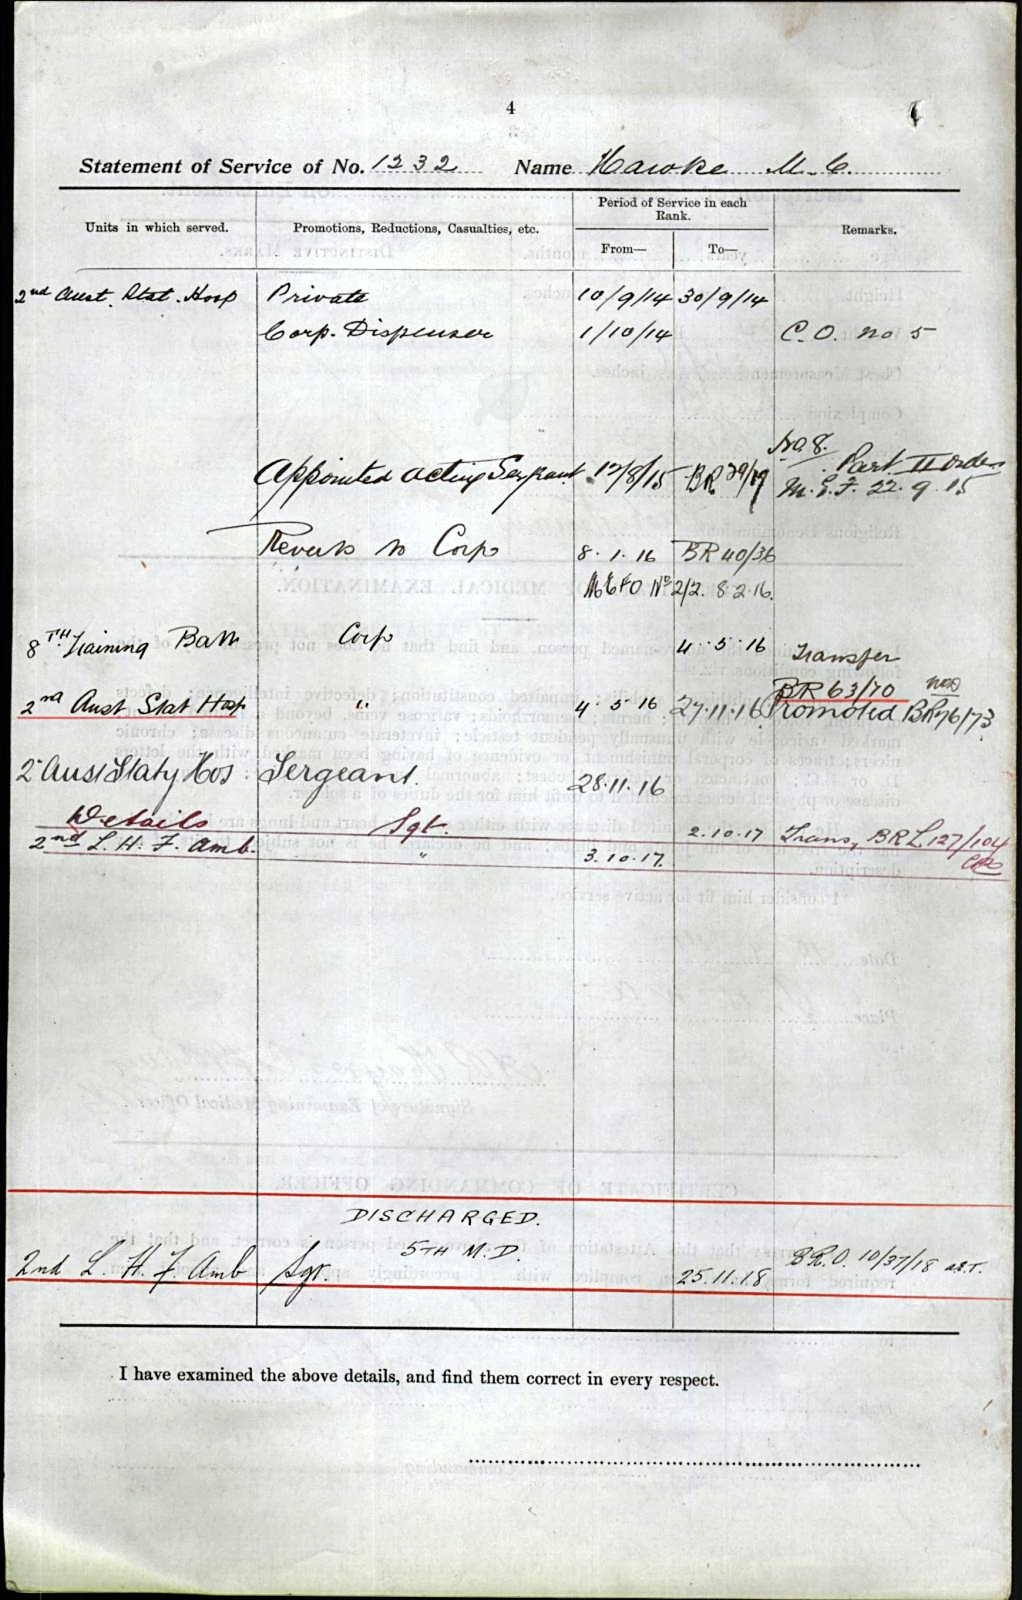 4
Statement of Service of No. 1232 Name Hawke M. C.
Units in which served. Promotions, Reductions, Casualties, etc. Period of Service in each Rank. From— To— Remarks.
2nd Aust. Stat. Hosp Private 10/9/14 30/9/14
Corp. Dispenser 1/10/14 C.O. No 5
Appointed acting Sergeant 12/8/15 BR 29/19 No 8. Part II Orders
M.E.F. 22.9.15
Reverts to Corp 8.1.16 BR 40/36
MEFO No 2/2. 8.2.16.
8TH Training Batt Corp 4.5.16 Transfer
BR 63/70
2nd Aust Stat Hosp " 4.5.16 27.11.16 Promoted BR 76/73
2 Aust Staty Hos Sergeant. 28.11.16
Details Sgt. 2.10.17 Trans, BRL 127/104
2nd L. H. F. Amb. " 3.10.17.
DISCHARGED.
5TH M.D.
2nd L. H. F. Amb Sgt. 25.11.18 B.R.O. 10/37/18
I have examined the above details, and find them correct in every respect.